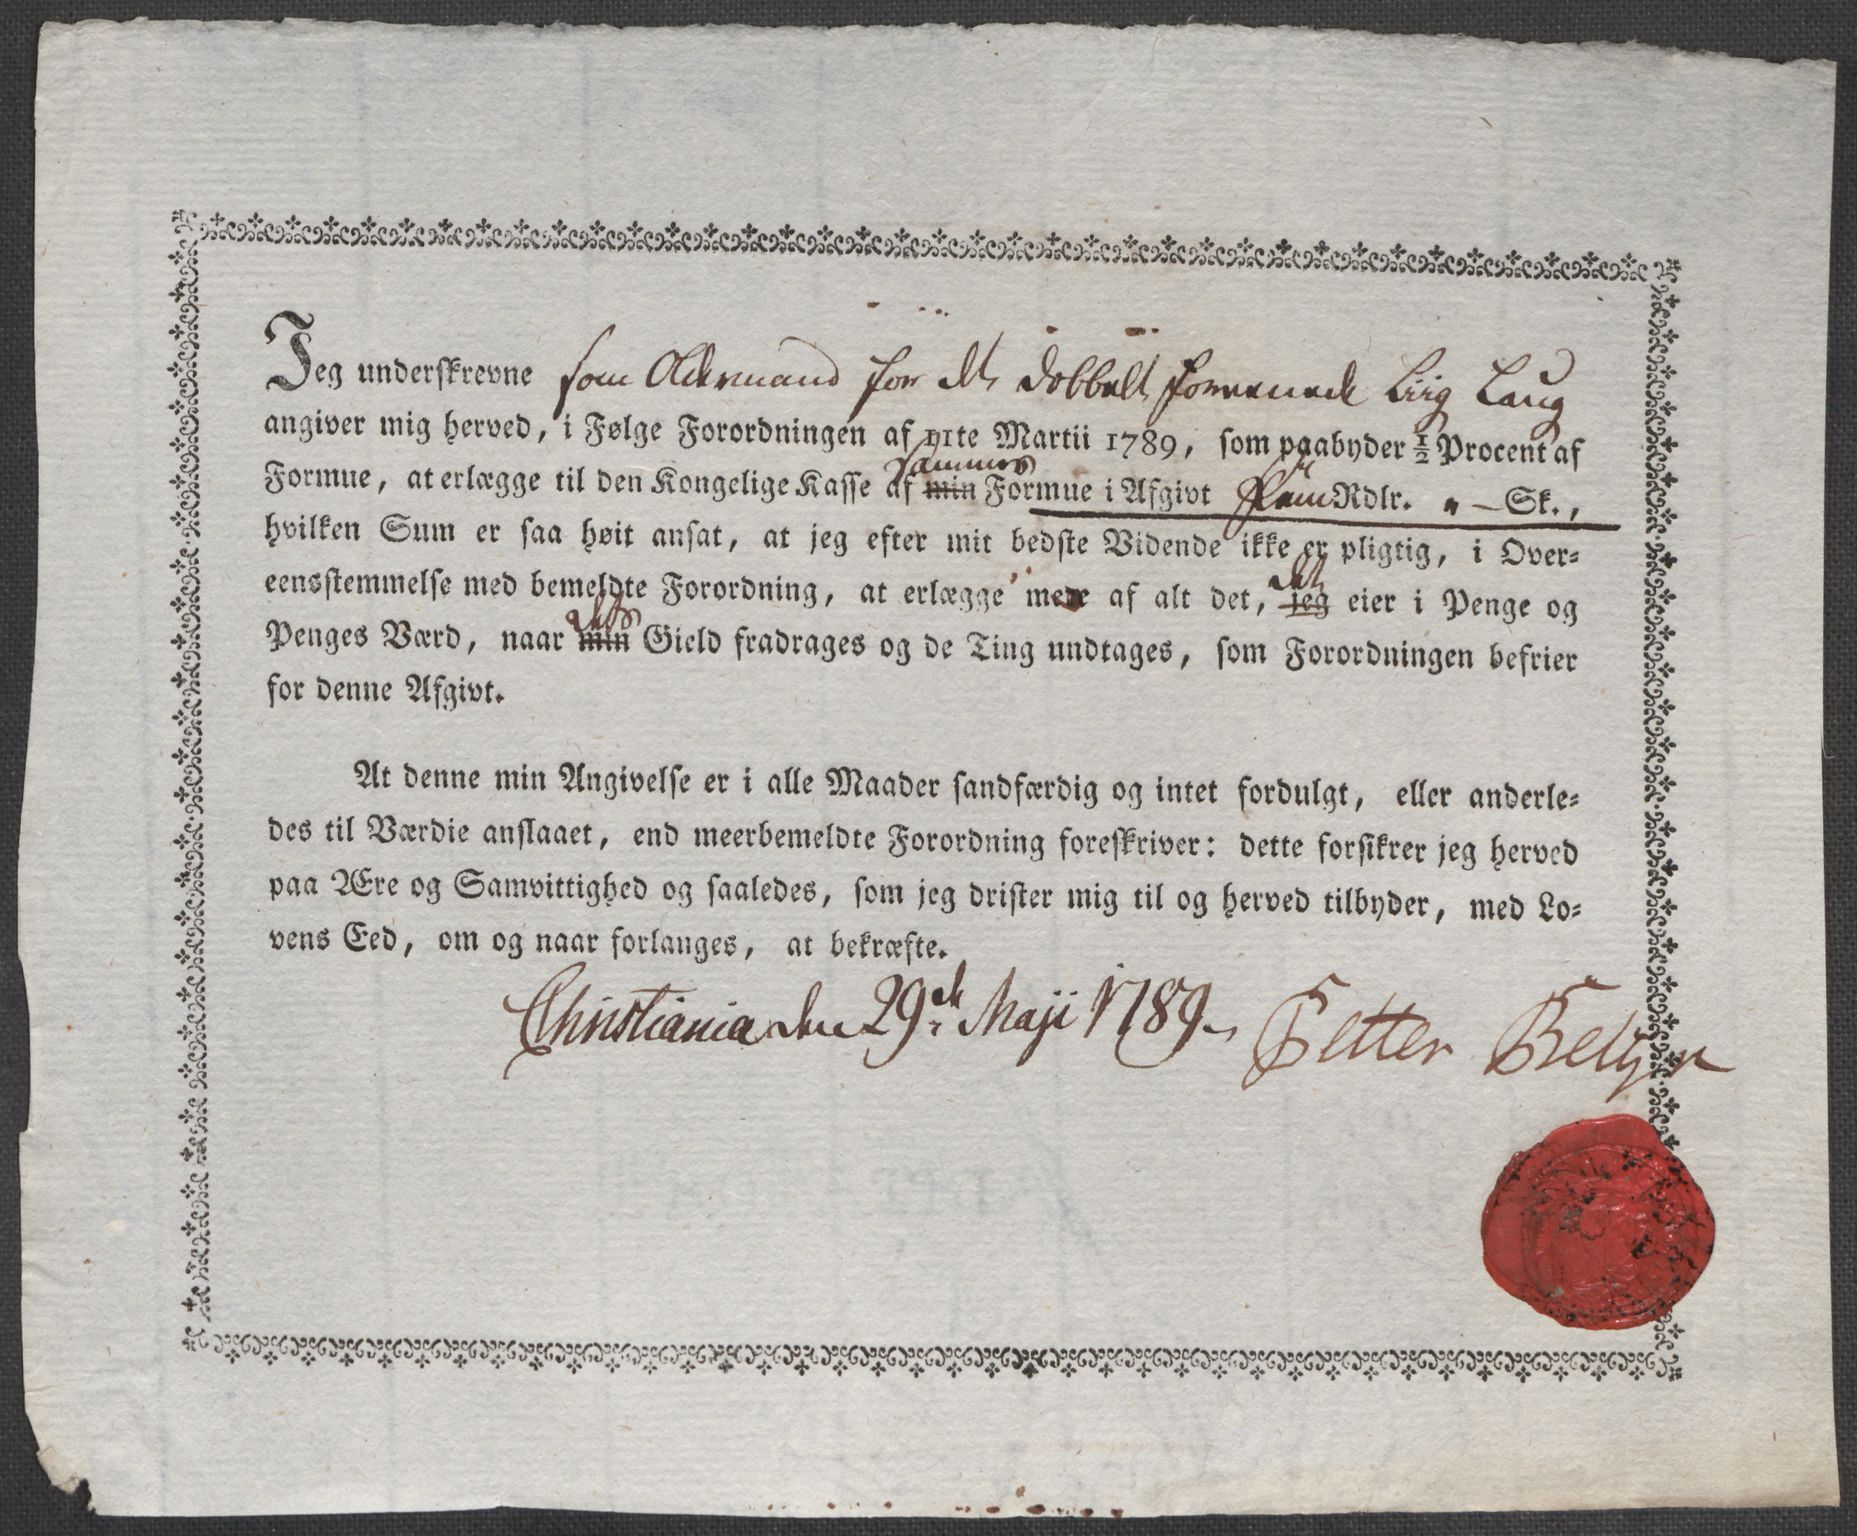 Jeg underskrevne som Oldermand for det dobbelt forreenede Liig Laug
angiver mig herved, i Følge Forordningen af 11te Martii 1789, som paabyder 1/2 Procent af
sammes
Formue, at erlægge til den Kongelige Kasse af min Formue i Afgivt Fem Rdlr. " — Sk.,
hvilken Sum er saa høit ansat, at jeg efter mit bedste Vidende ikke er pligtig, i Over=
det
eensstemmelse med bemeldte Forordning, at erlægge mere af alt det, jeg eier i Penge og
dets
Penges Værd, naar min Gield fradrages og de Ting undtages, som Forordningen befrier
for denne Afgivt.
At denne min Angivelse er i alle Maader sandfærdig og intet fordulgt, eller anderle=
des til Værdie anslaaet, end meerbemeldte Forordning foreskriver: dette forsikrer jeg herved
paa Ære og Samvittighed og saaledes, som jeg drister mig til og herved tilbyder, med Lo=
vens Eed, om og naar forlanges, at bekræfte.
Christiania den 29de Maji 1789. Petter